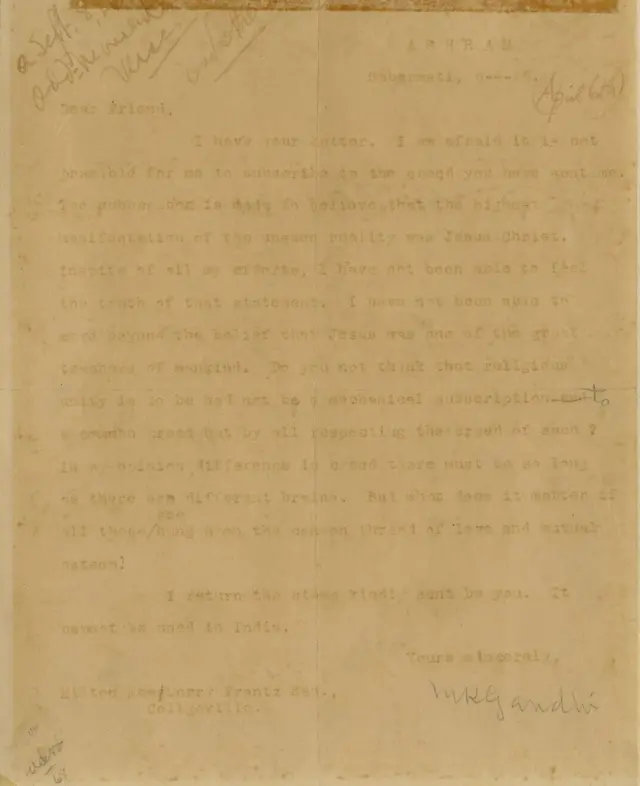 ASHRAM
Sabarmati,
(April 6th)
Dear Friend,
I have your letter. I am afraid it is not
possible for me to subscribe to the creed you have sent me.
The subscriber is made to believe that the highest
manifestation of the unseen reality was Jesus Christ.
Inspite of all my efforts, I have not been able to feel
the truth of that statement. I have not been able to
move beyond the belief that Jesus was one of the great
teachers of mankind. Do you not think that religious
unity is to be had not by a mechanical subscription to
a common creed but by all respecting the creed of each ?
In my opinion, difference in creed there must be so long
as there are different brains. But what does it matter if
all these/hung upon the common thread of love and mutual
are
esteem?
I return the stamp kindly sent by you. It
cannot be used in India.
Yours sincerely,
MKGandhi
Milton Frantz Esq.,
Collgeville.